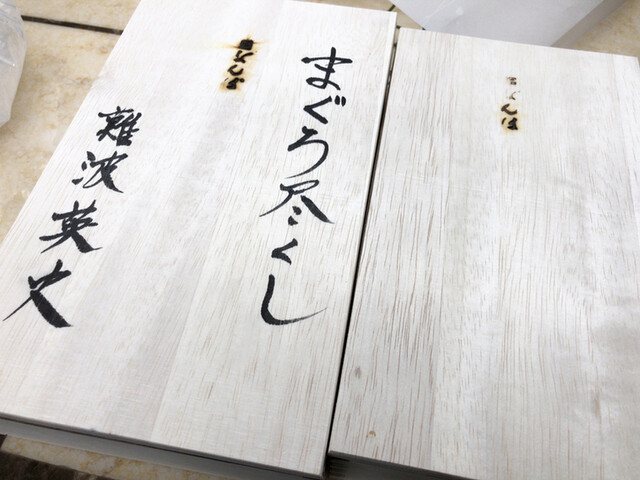 まぐろ尽くし
難波英史